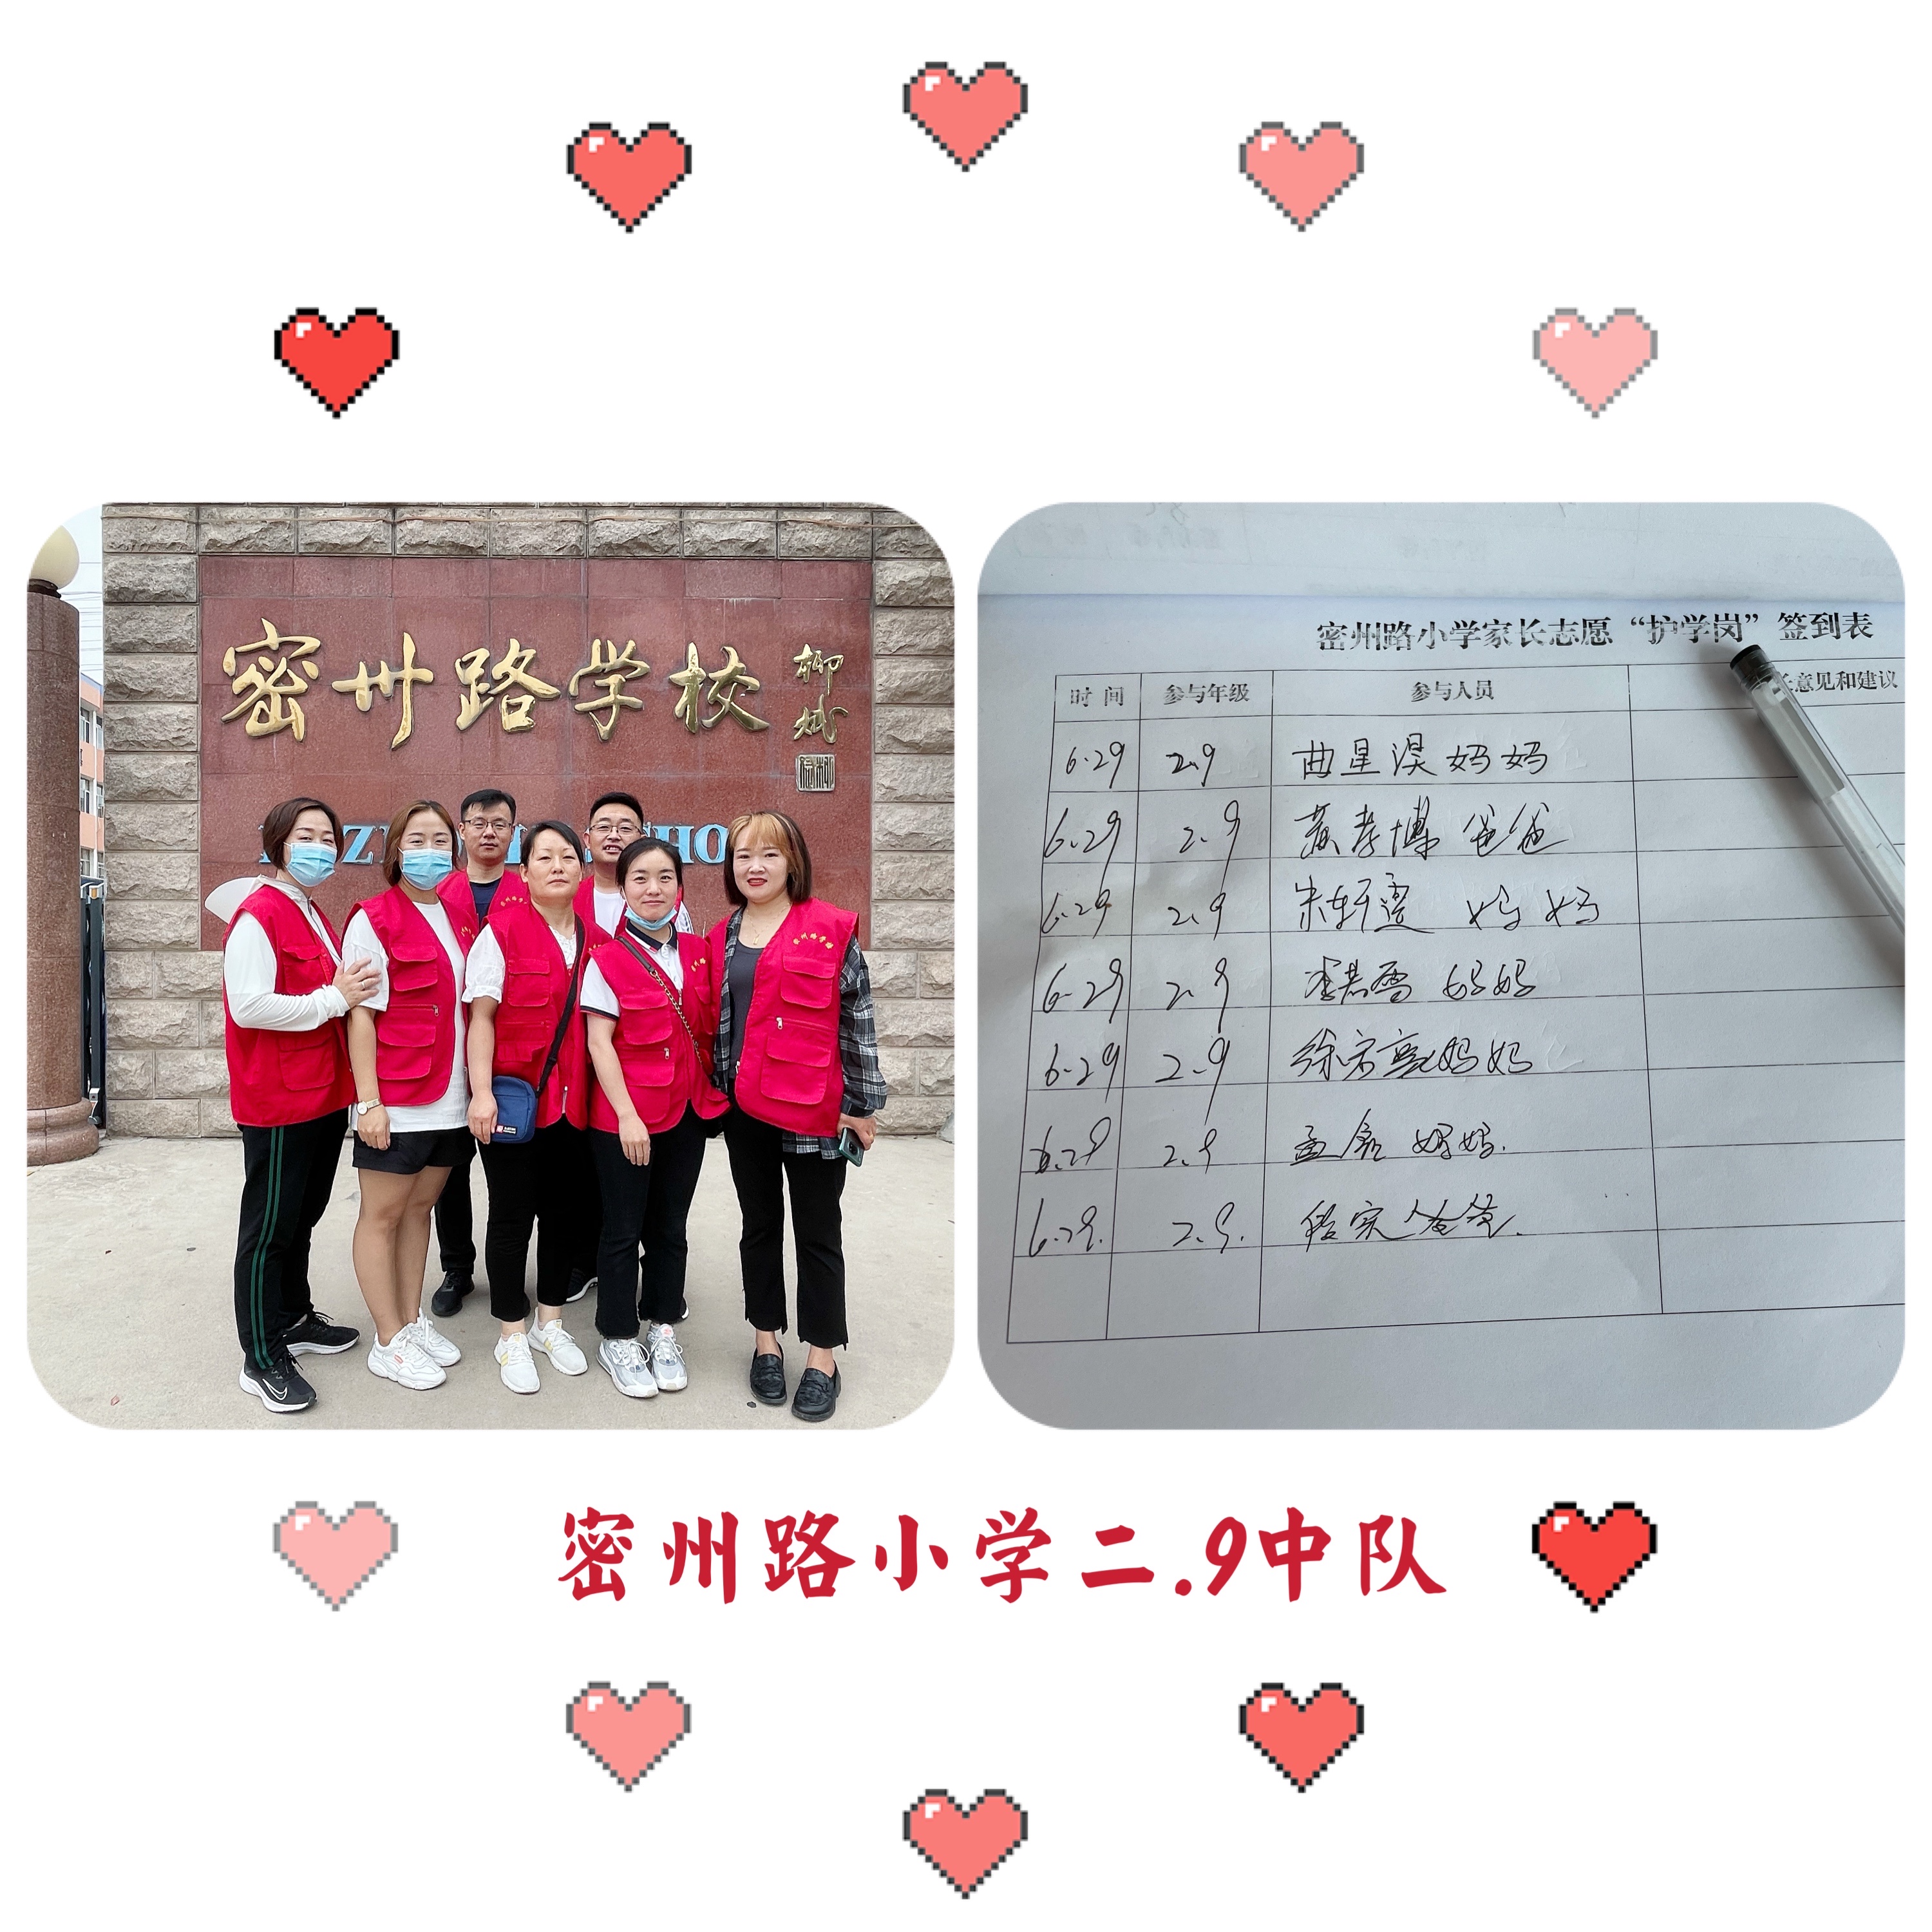 密州路学校
柳斌
密州路小学家长志愿“护学岗”签到表
时 间 参与年级 参与人员 意见和建议
6.29 2.9 曲星淏妈妈
6.29 2.9 黄孝博爸爸
6.29 2.9 朱轩霆 妈妈
6.29 2.9 李若雪 妈妈
6.29 2.9 徐宗 妈妈
6.29 2.9 孟 妈妈.
6.29. 2.9. 爸爸.
密州路小学二.9中队